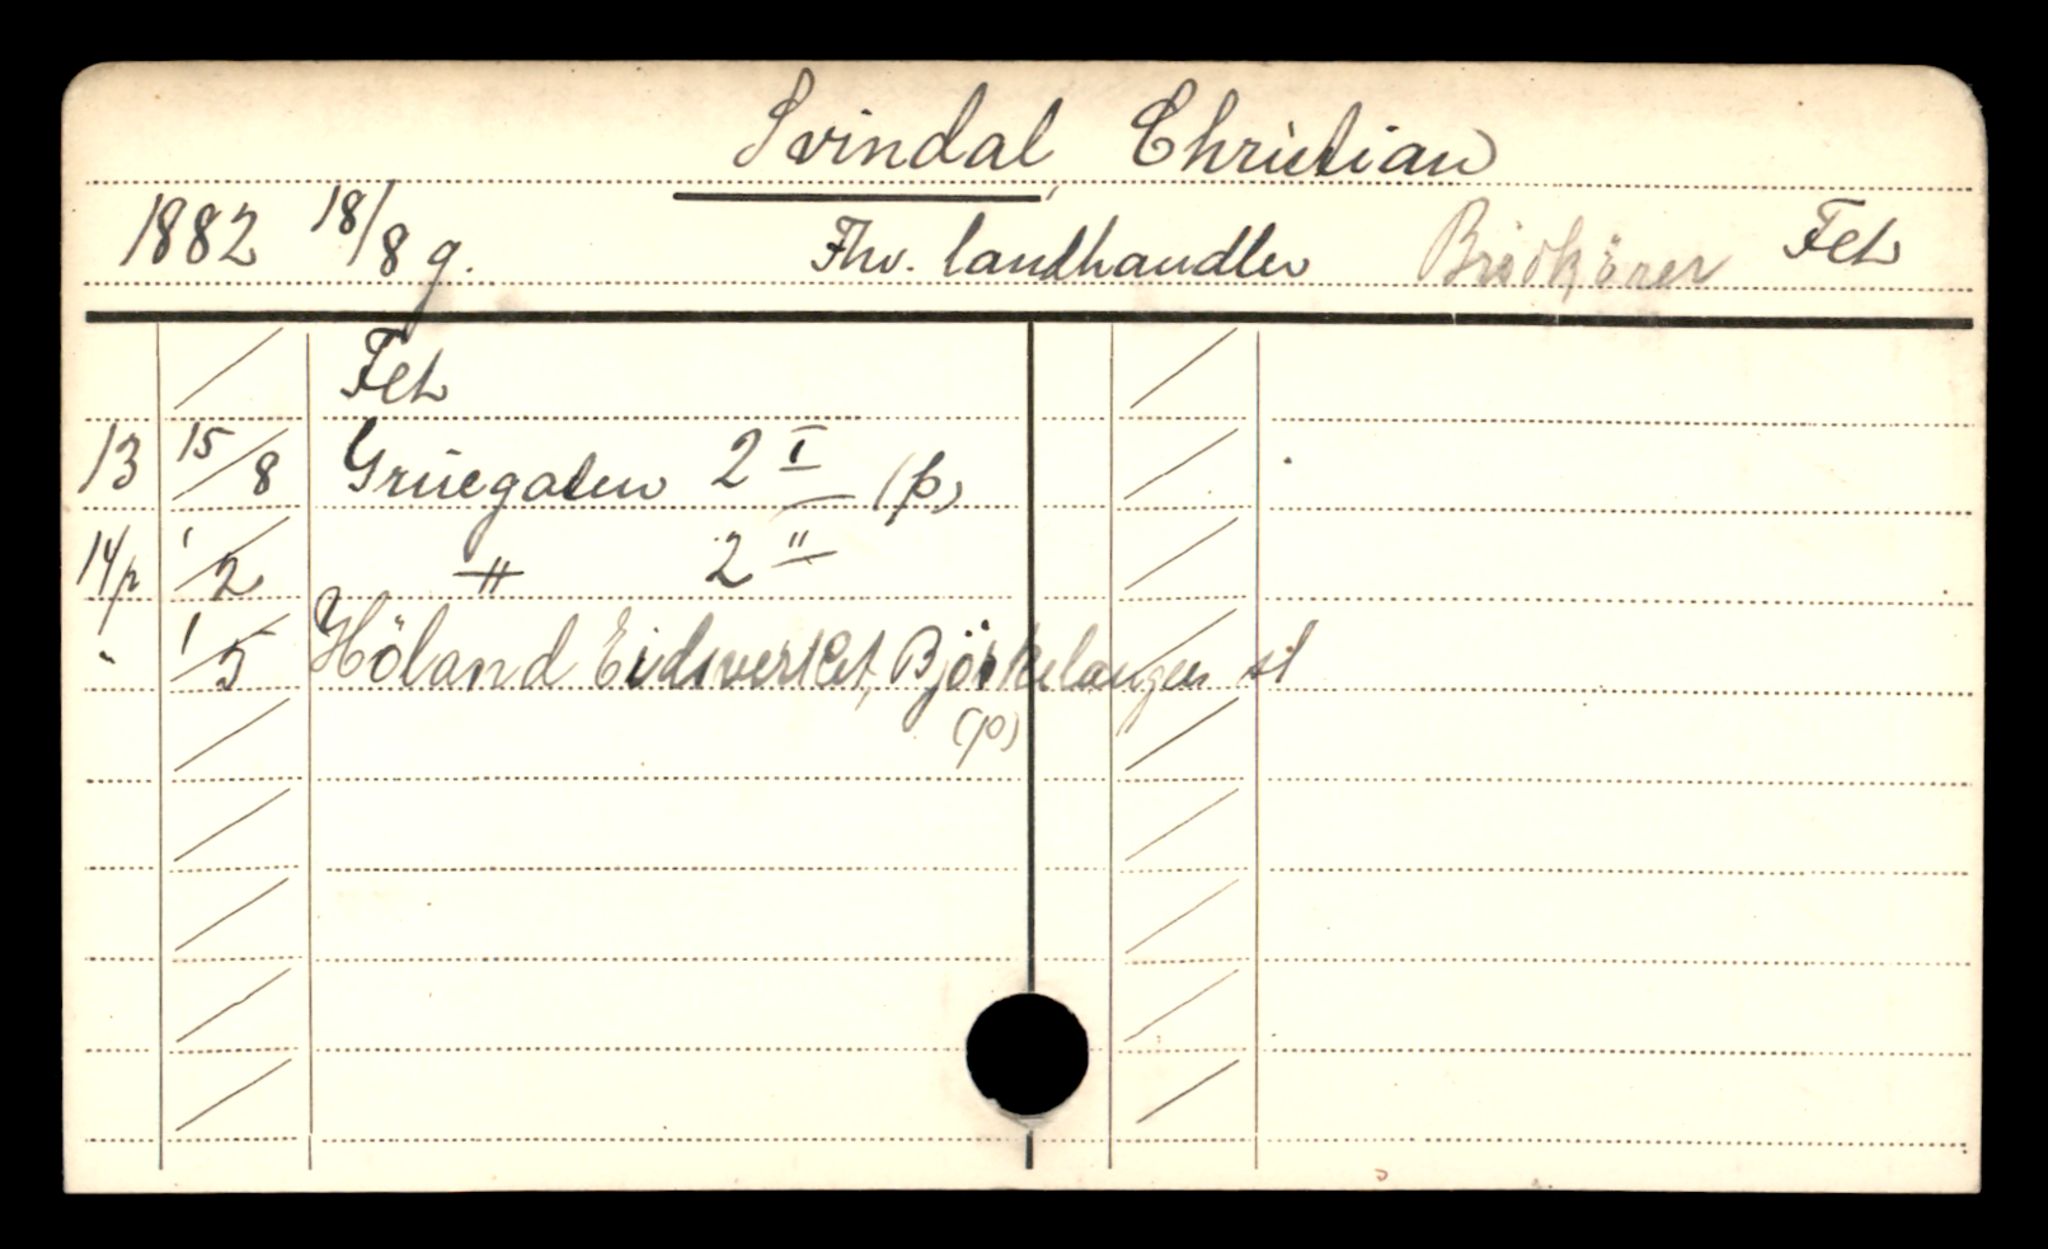 Svindal, Christian
1882 18/8 g. Fhv. landhandler Brödkörer Fet
Fet
13 15/8 Grüegaten 2 I (p)
14p 1/2 —"— 2 II
" 1/5 Höland Eidsverket, Björkelangen st
(p)